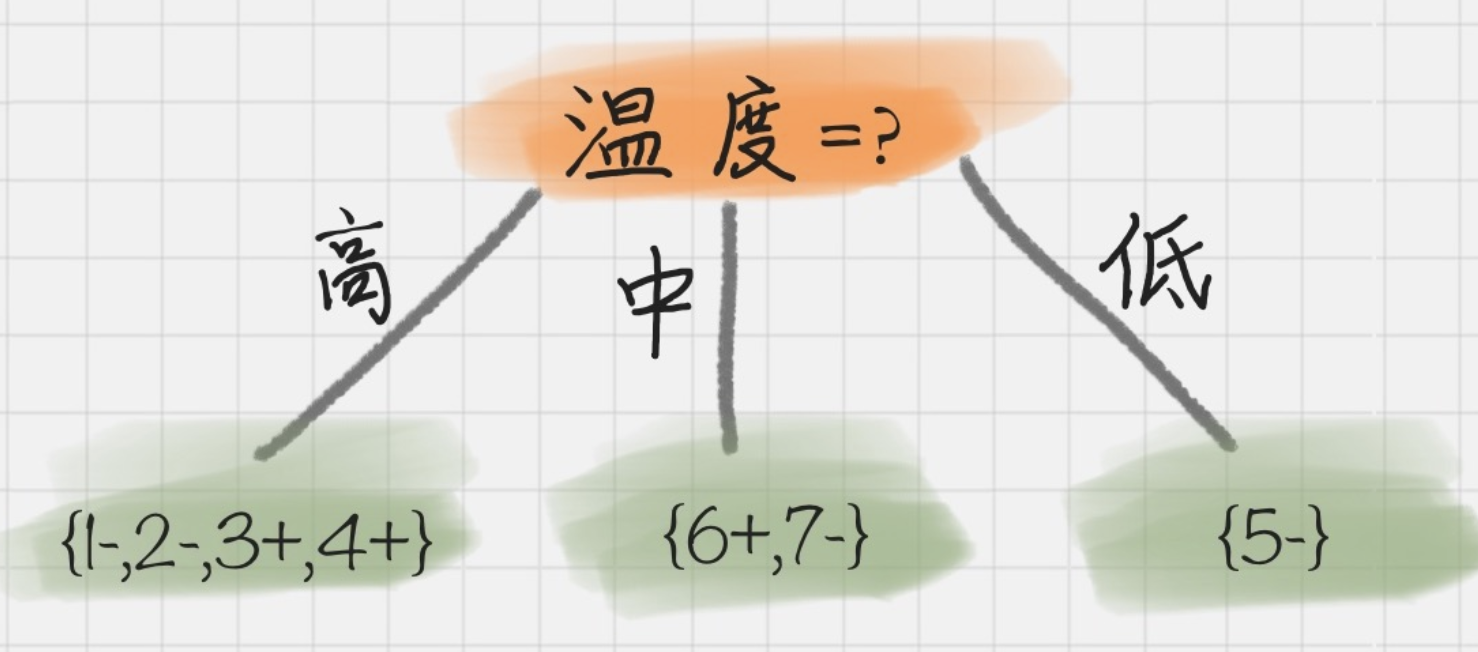 温度=?
高 中 低
{1-,2-,3+,4+} {6+,7-} {5-}